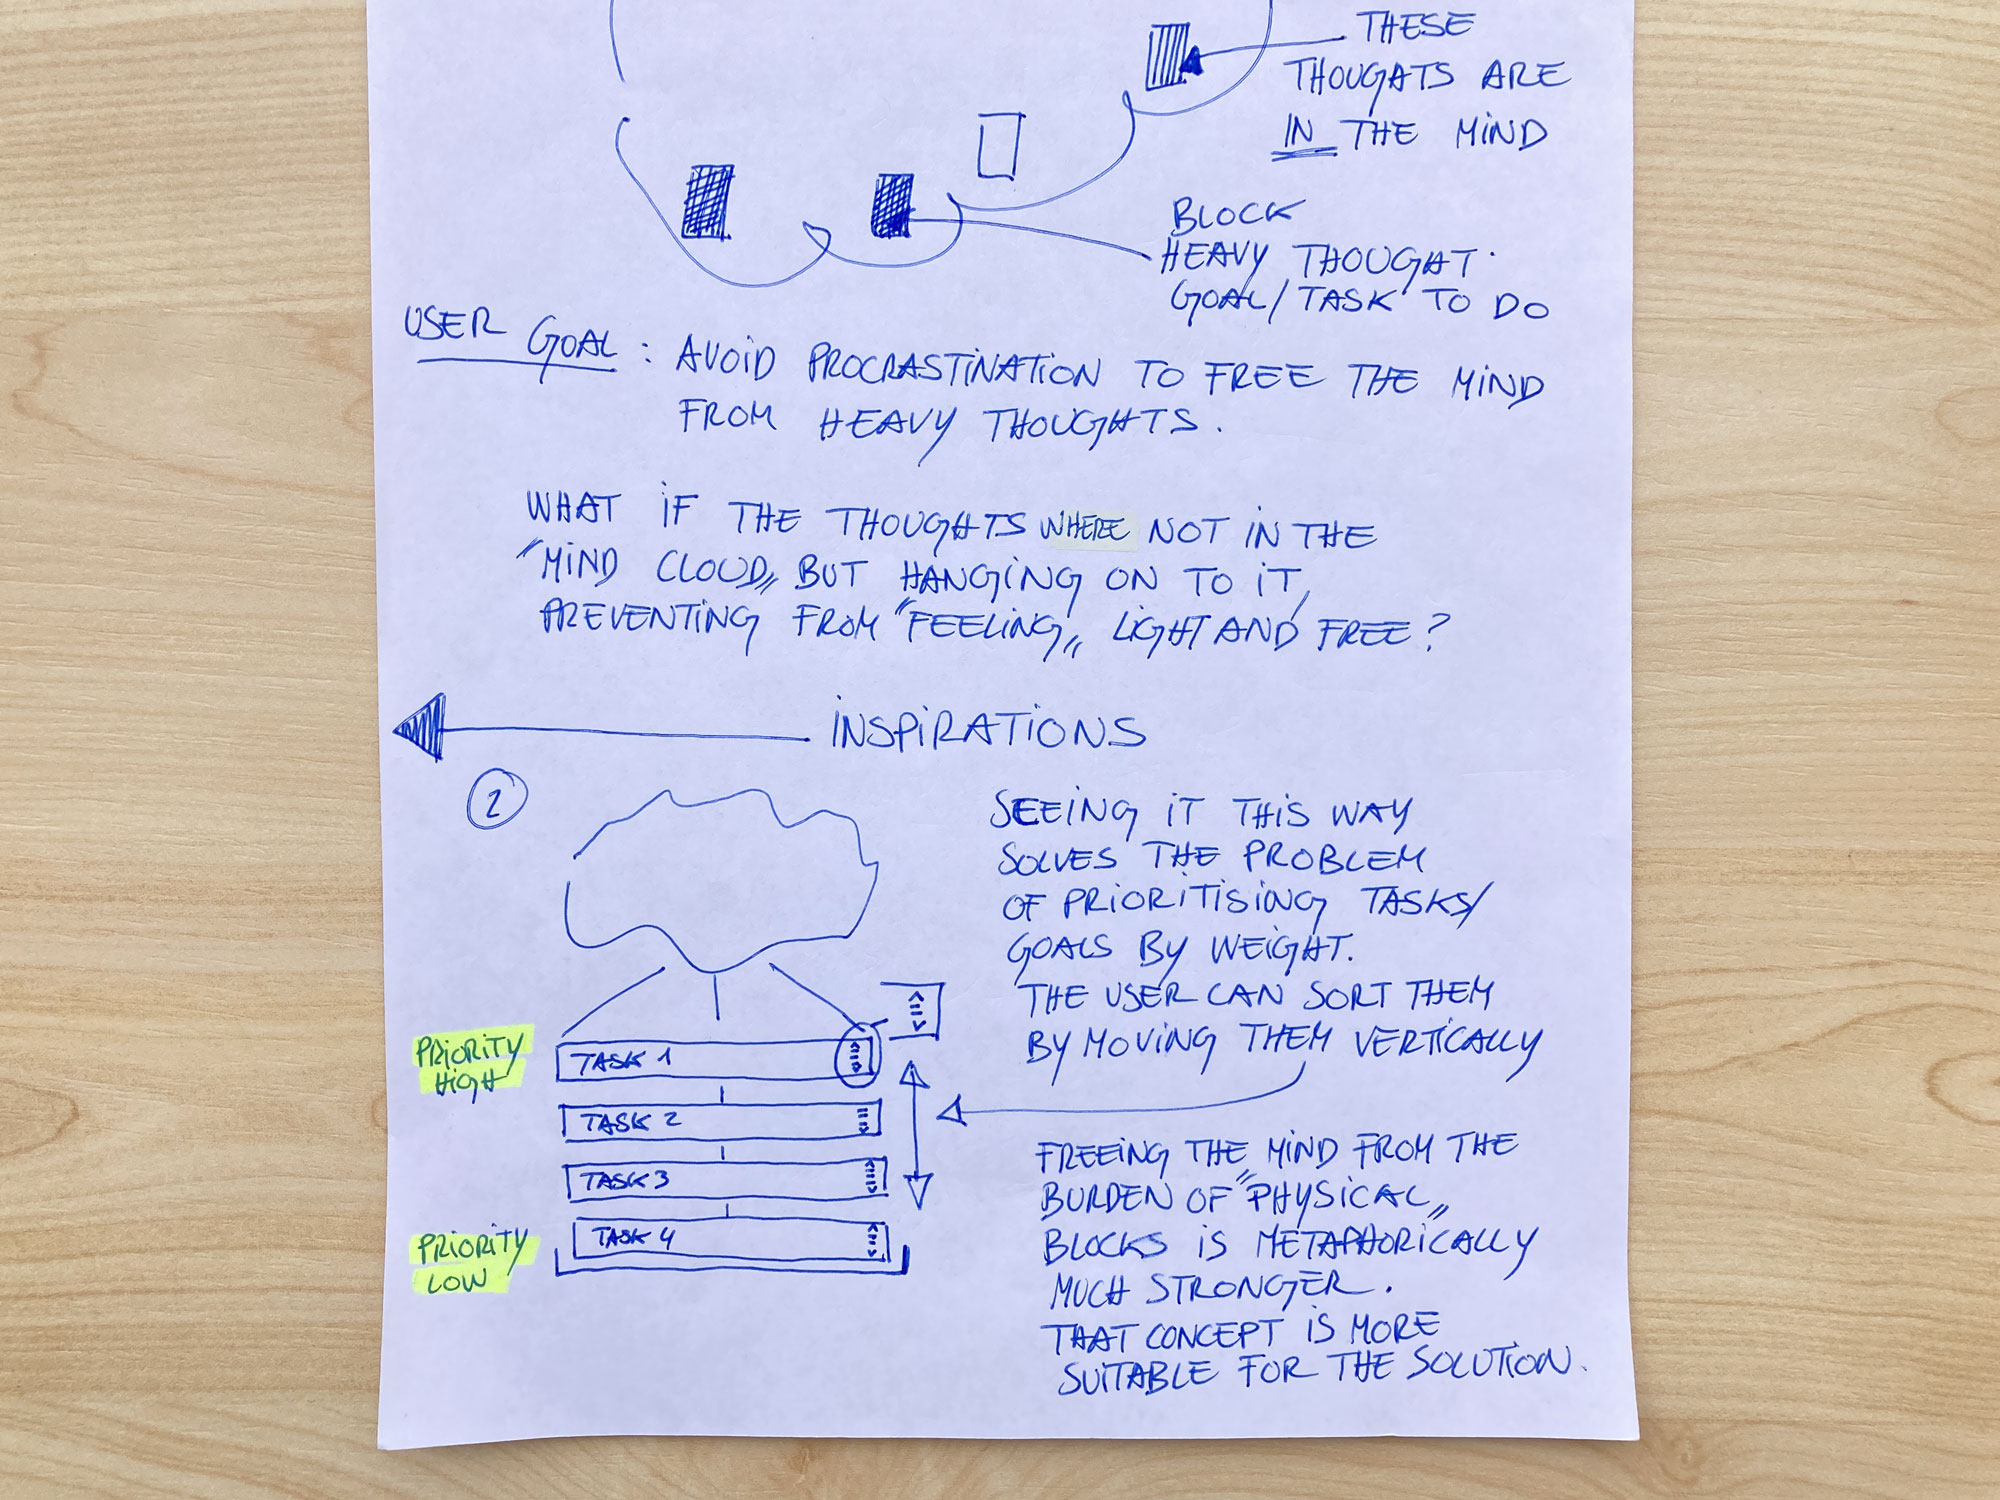 THESE
THOUGHTS ARE
IN THE MIND
BLOCK
HEAVY THOUGHT.
GOAL/TASK TO DO
USER GOAL: AVOID PROCRASTINATION TO FREE THE MIND
FROM HEAVY THOUGHTS.
WHAT IF THE THOUGHTS WHERE NOT IN THE
"MIND CLOUD" BUT HANGING ON TO IT,
PREVENTING FROM "FEELING" LIGHT AND FREE?
INSPIRATIONS
2
SEEING IT THIS WAY
SOLVES THE PROBLEM
OF PRIORITISING TASKS/
GOALS BY WEIGHT.
THE USER CAN SORT THEM
BY MOVING THEM VERTICALLY
PRIORITY
HIGH
TASK 1
TASK 2
TASK 3
TASK 4
PRIORITY
LOW
FREEING THE MIND FROM THE
BURDEN OF "PHYSICAL"
BLOCKS IS METAPHORICALLY
MUCH STRONGER.
THAT CONCEPT IS MORE
SUITABLE FOR THE SOLUTION.